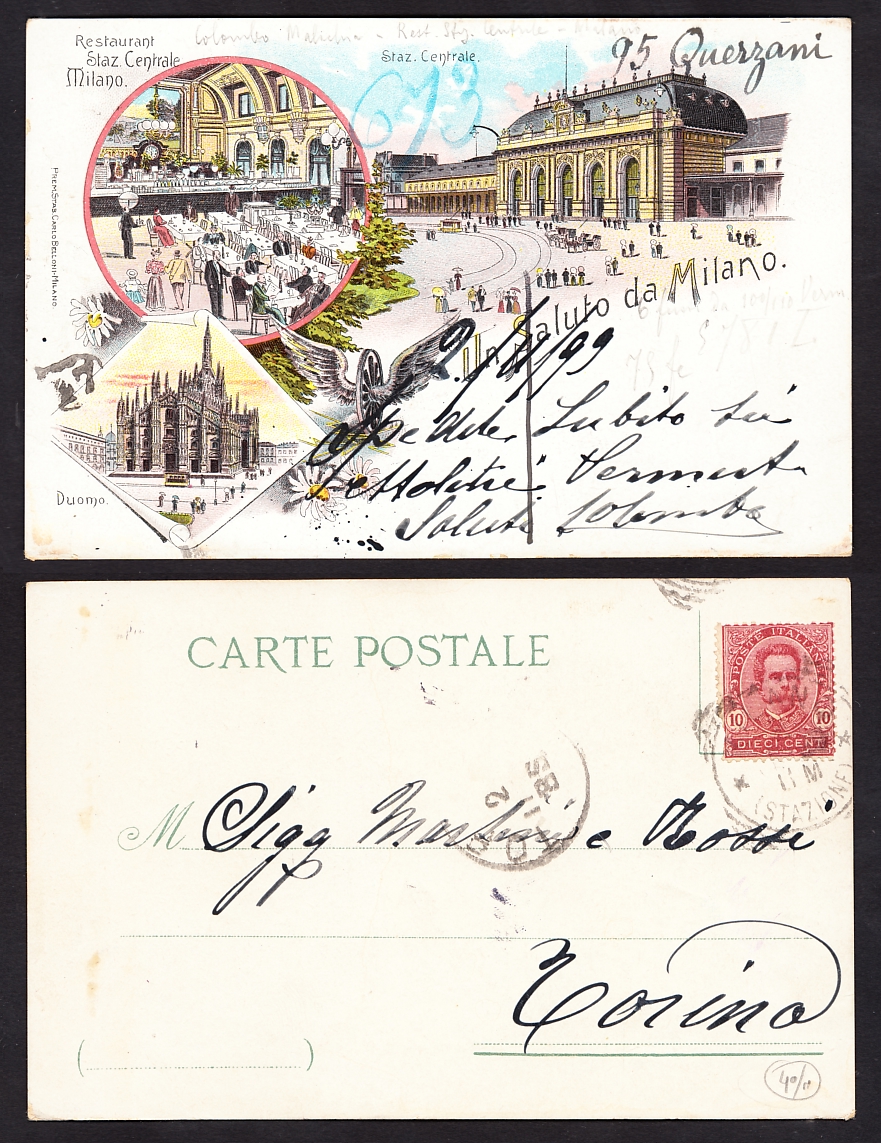 Restaurant
Staz. Centrale
Milano.
Colombo - Rest. Stz. Centrale - Milano
Staz. Centrale.
95 Querzani
673
PREM. STAB. CARLO BELLONI-MILANO
Un Saluto da Milano.
2/ /99
Spedite Subito sei
ettolitri Vermouth
Saluti Colombo
Duomo.
CARTE POSTALE
POSTE ITALIANE
10 10
DIECI CENT
11 M
(STAZIONE)
M Sigg Martini e Rossi
Torino
40/